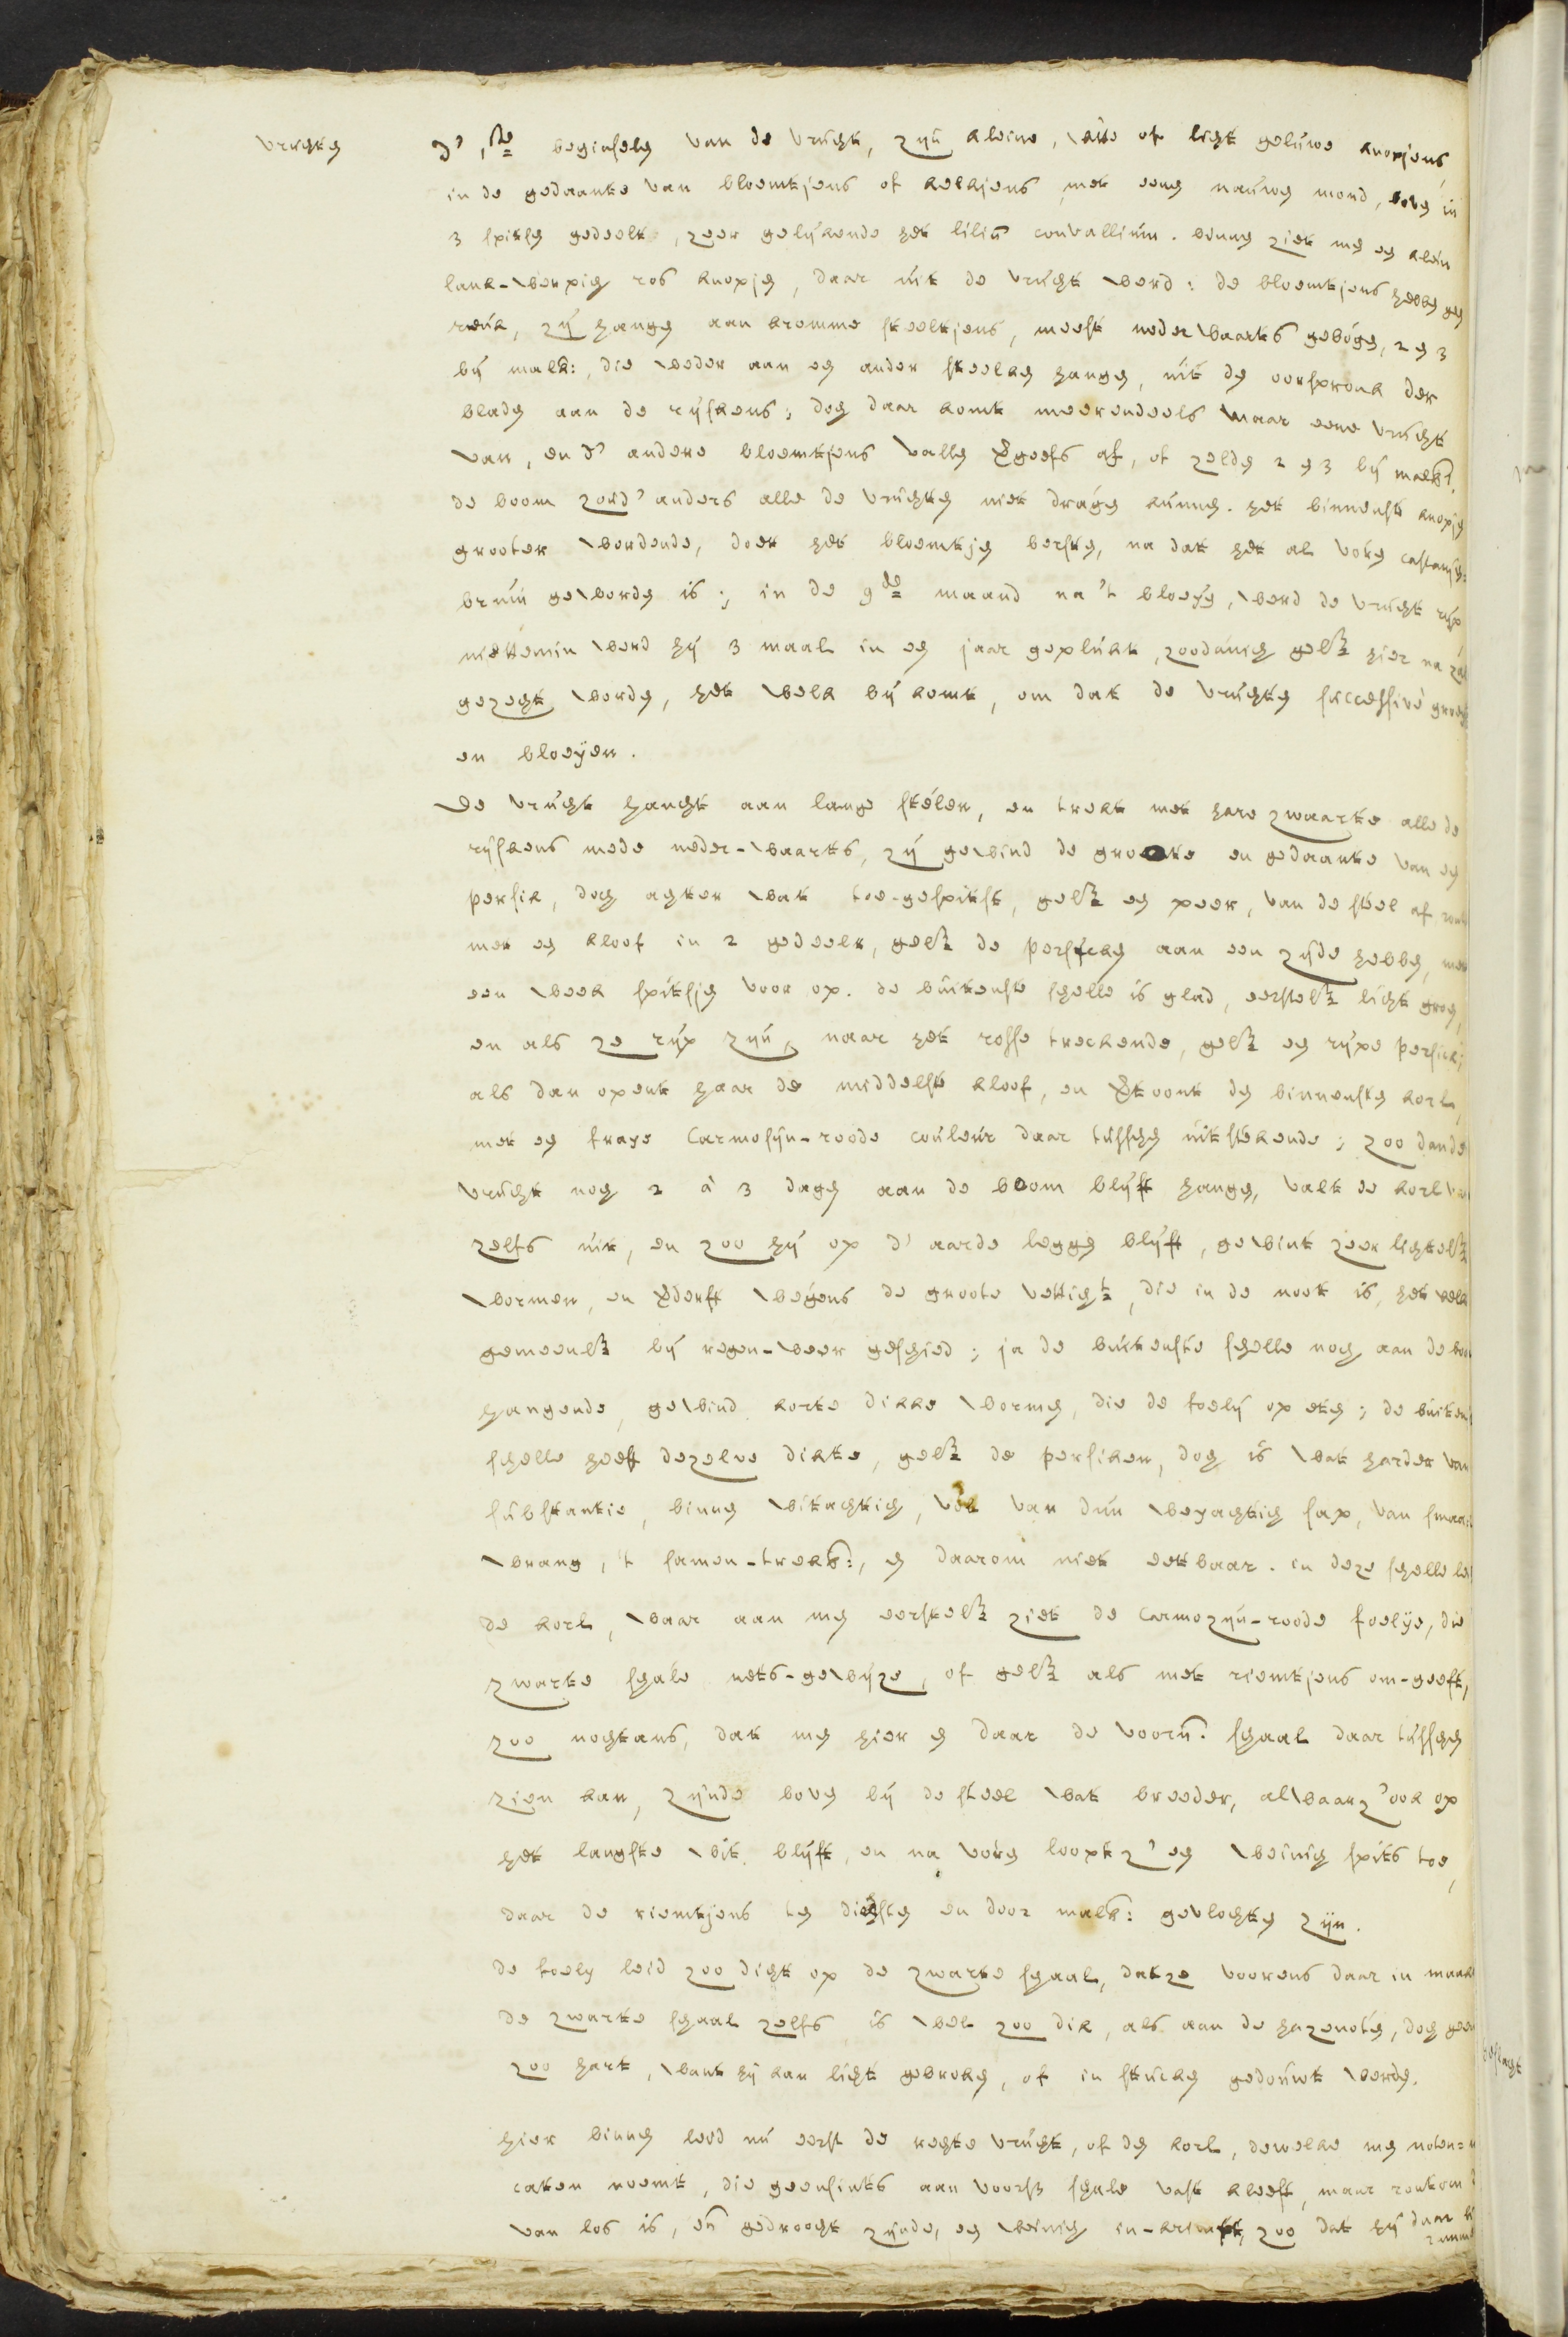 vruchten
d' 1ste beginselen van de vrucht, zyn kleine, witte of licht geluwe knopjens,
in de gedaante van bloemtjens of kelkjens, met eenen nauwen mond, boven in
3 spitsen gedeelt, zeer gelykende het liliu convallium. binnen ziet men een klein
lank-werpich ros knopjen, daar uit de vrucht werd: de bloemtjens hebben geen
reuk, zy hangen aan kromme steeltjens, meest neder waarts gebogen, 2 en 3
by malk:, die weder aan een ander steelken hangen, uit den oorspronk der
bladen aan de ryskens; doch daar komt meerendeels maar eene vrucht
van, en d' andere bloemtjens vallen vergeefs af, of zelden 2 en 3 by malk:
de boom zoud' anders alle de vruchten niet dragen kunnen. het binnenst knopjen
grooter wordende, doet het bloemtjen bersten, na dat het al voren castanjen-
bruin geworden is; in de 9de maand na 't bloeyen, werd de vrucht ryp
niettemin werd hy 3 maal in een jaar geplukt, zoodanich gelyk hier na zal
gezecht worden, het welk by komt, om dat de vruchten successive groeyen
en bloeyen.
De vrucht hancht aan lange stelen, en trekt met hare zwaarte alle de
ryskens mede neder-waarts, zy gewind de groote en gedaante van een
persik, doch achter wat toe-gespitst, gelyk een peer, van de steel af
met een kloof in 2 gedeelt, gelyk de persicken aan een zyde hebben, met
een week spitsjen voor op. de buitenste schelle is glad, eerstelyk licht groen,
en als ze ryp zyn, naar het rosse treckende, gelyk een rype persick;
als dan opent haar de middelste kloof, en vertoont den binnensten korl,
met een fraye Carmosyn-roode couleur daar tusschen uitstekende; zoo dan de
vrucht noch 2 à 3 dagen aan de boom blyft hangen, valt de korl van
zelfs uit, en zoo hy op d' aarde leggen blyft, gewint zeer lichtelyk
wormen, en verderft wegens de groote vetticht, die in de noot is, het welk
gemeenlyk by regen-weer geschied; ja de buitenste schelle noch aan de boom
hangende, gewind korte dikke wormen, die de foely op eten; de buitenste
schelle heeft dezelve dikte, gelyk de persiken, doch is wat harder van
substantie, binnen witachtich, vol van dun weyachtich sap, van smaak
wrang, 't samen-trekk:, en daarom niet eetbaar. in deze schelle leid
de korl, waar aan men eerstelyk ziet de Carmozyn-roode foelye, die
zwarte schale nets-gewyze, of gelyk als met riemtjens om-geeft,
zoo nochtans, dat men hier en daar de voorn: schaal daar tusschen
zien kan, zynde boven by de steel wat breeder, alwaar z' ook op
het langste wit blyft, en na voren loopt z' een weinich spits toe,
daar de riemtjens ten dichsten en door malk: gevlochten zyn.
de foely leid zoo dicht op de zwarte schaal, dat ze voorens daar in maakt
de zwarte schaal zelfs is wel zoo dik, als aan de hazenoten, doch geen
zoo hart, want hy kan licht gebroken, of in stucken gedouwt werden.
hier binnen leid nu eerst de rechte vrucht, of den korl, dewelke men noten-mus
caten noemt, die geensints aan voorsz schale vast kleeft, maar rontom
van los is, en gedroocht zynde, een weinich in-krimpt, zoo dat hy daar